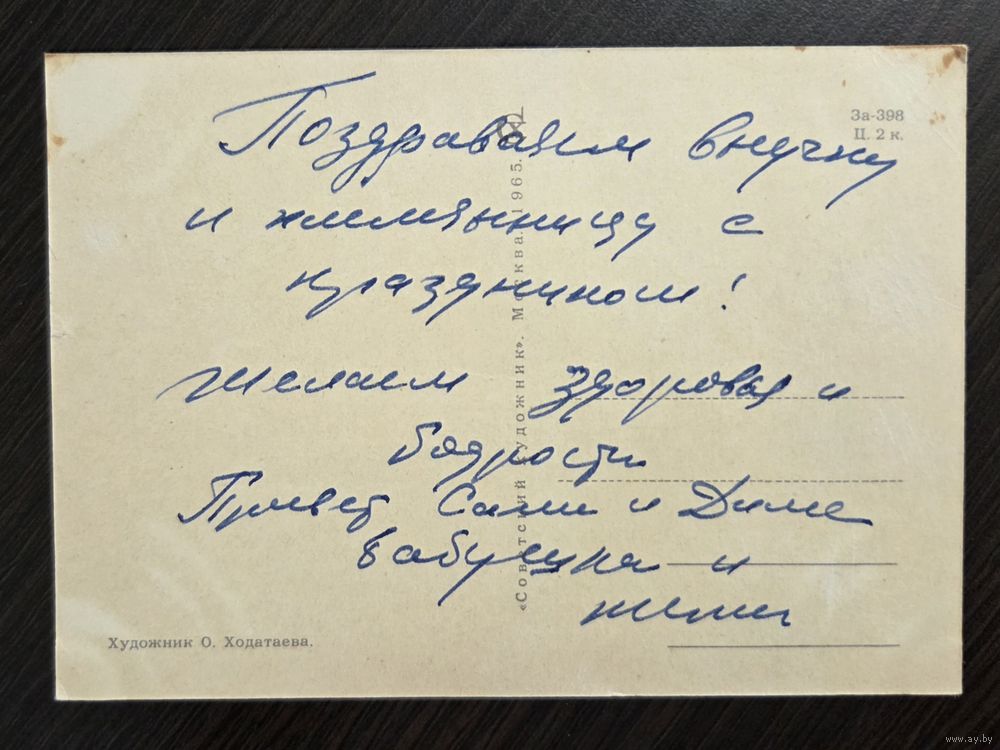 Поздравляем внучку
и племянницу с
праздником!
Желаем здоровья и
бодрости
Привет Сами и Диме
бабушка и
тети
За-398
Ц. 2 к.
«Советский художник». Москва. 1965.
Художник О. Ходатаева.
www.ay.by